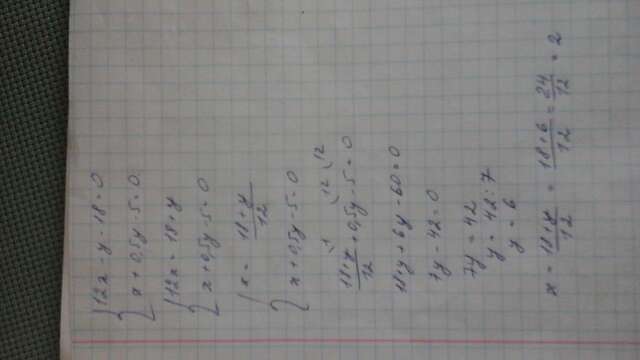 { 12x - y - 18 = 0
{ x + 0,5y - 5 = 0
{ 12x = 18 + y
{ x + 0,5y - 5 = 0
{ x = (18 + y)/12
{ x + 0,5y - 5 = 0
(18 + y)/12 \1 + 0,5y \12 - 5 \12 = 0
18 + y + 6y - 60 = 0
7y - 42 = 0
7y = 42
y = 42 : 7
y = 6
x = (18 + y)/12 = (18 + 6)/12 = 24/12 = 2